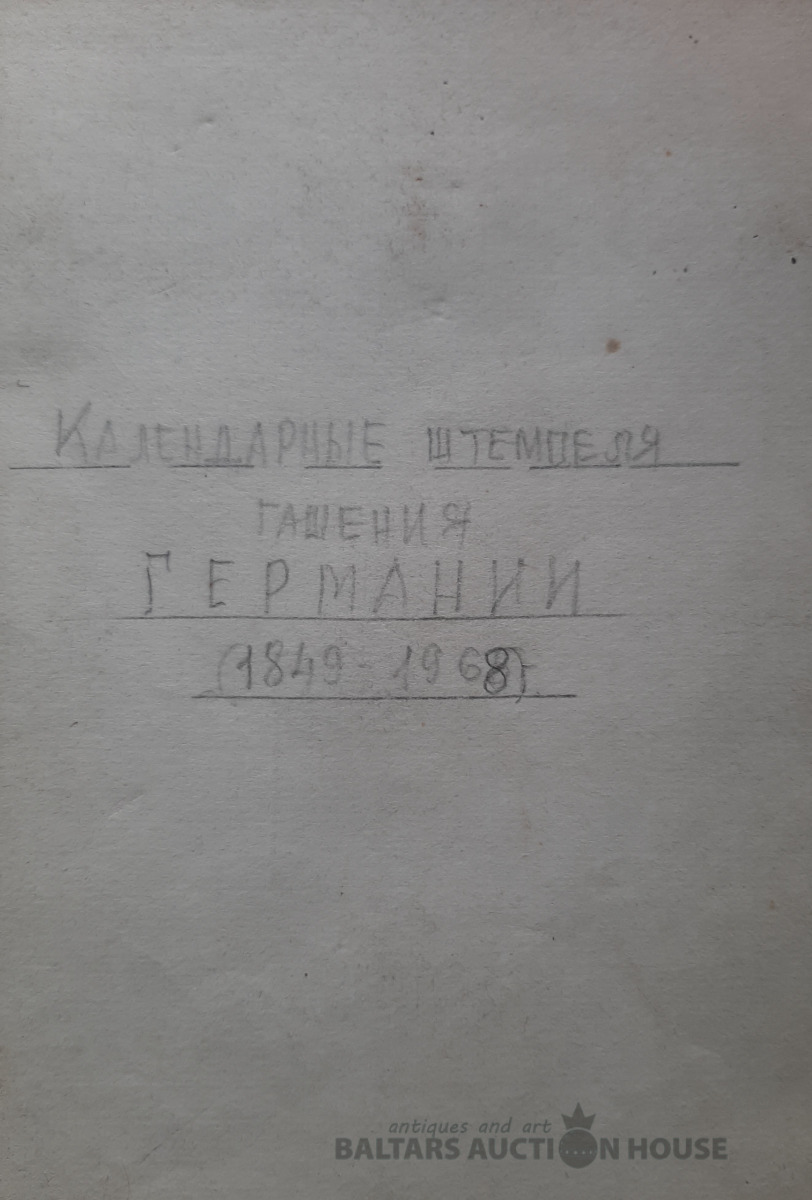 КАЛЕНДАРНЫЕ ШТЕМПЕЛЯ
ГАШЕНИЯ
ГЕРМАНИИ
(1849-1968)
antiques and art
BALTARS AUCTION HOUSE